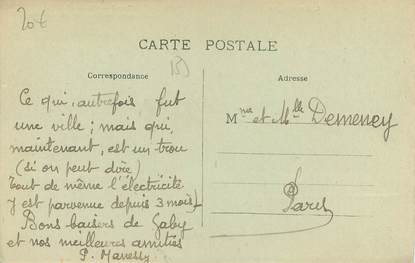 20€
CARTE POSTALE
Correspondance
Adresse
Ce qui, autrefois fut
une ville ; mais qui,
maintenant, est un trou
(si on peut dire)
Tout de même l'électricité
y est parvenue depuis 3 mois !
Bons baisers de Gaby
et nos meilleures amitiés
P. Manessy
Mme et Mlle Demeney
Paris